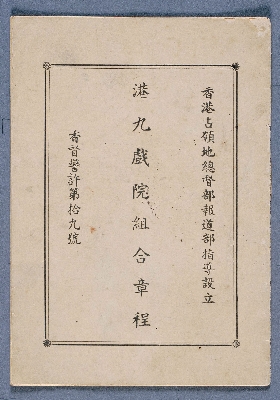 香港占領地總督部報道部指導設立
港九戲院組合章程
香督警許第拾九號